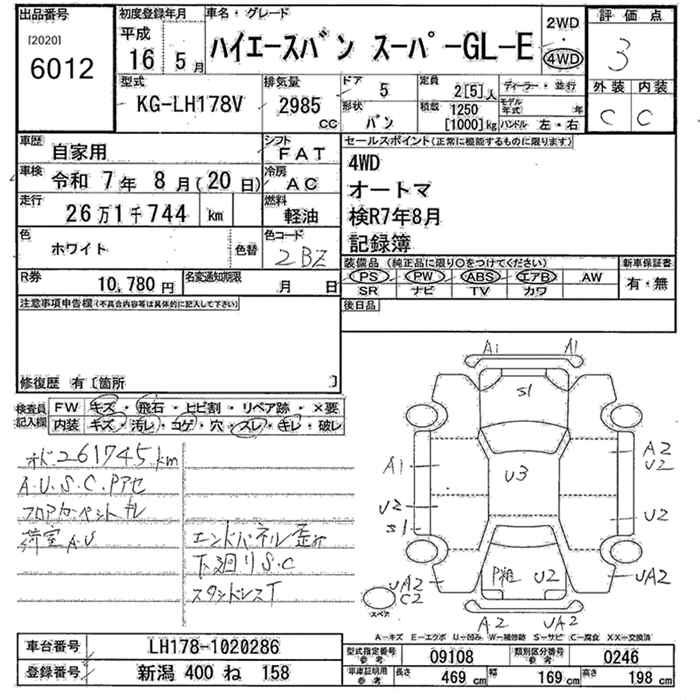 出品番号
[2020]
6012
初度登録年月
平成
16 5月
車名・グレード
ハイエースバン スーパーGL-E
2WD
・
4WD
評価点
3
外装 内装
C C
型式
KG-LH178V
排気量
2985
CC
ドア
5
形状
バン
定員
2[5]人
積載
1250
[1000]kg
ディーラー・並行
モデル年式 年
ハンドル 左・右
車歴
自家用
シフト
FAT
車検
令和 7年 8月(20日)
冷房
AC
走行
26万1千744 km
燃料
軽油
色
ホワイト
色替
色コード
2BZ
R券
10,780円
名変通知期限
月 日
セールスポイント(正常に機能するものに限ります)
4WD
オートマ
検R7年8月
記録簿
装備品(純正品に限り〇をつけてください)
PS PW ABS エアB AW
SR ナビ TV カワ
新車保証書
有・無
後日品
注意事項申告欄(不具合内容等は具体的に記入して下さい)
修復歴 有〔箇所 〕
検査員
記入欄
FW キズ・飛石・ヒビ割・リペア跡・×要
内装 キズ・汚レ・コゲ・穴・スレ・キレ・破レ
オド261745km
A.U.S.C.Pアセ
フロアカーペットキレ
荷室A.U
エンドパネル歪
下廻りS.C
スタッドレスT
A1 A1
S1
A1
U2
S1
U3
A2
U2
U2
P粗 U2
UA2
C2
スペア
UA2
A2 UA2
A-キズ E-エクボ U-凹み W-補修跡 S-サビ C-腐食 XX-交換済
車台番号
LH178-1020286
登録番号
新潟 400 ね 158
型式指定番号
参考
09108
類別区分番号
参考
0246
車庫証明用
参考
長さ
469 cm
幅
169 cm
高さ
198 cm